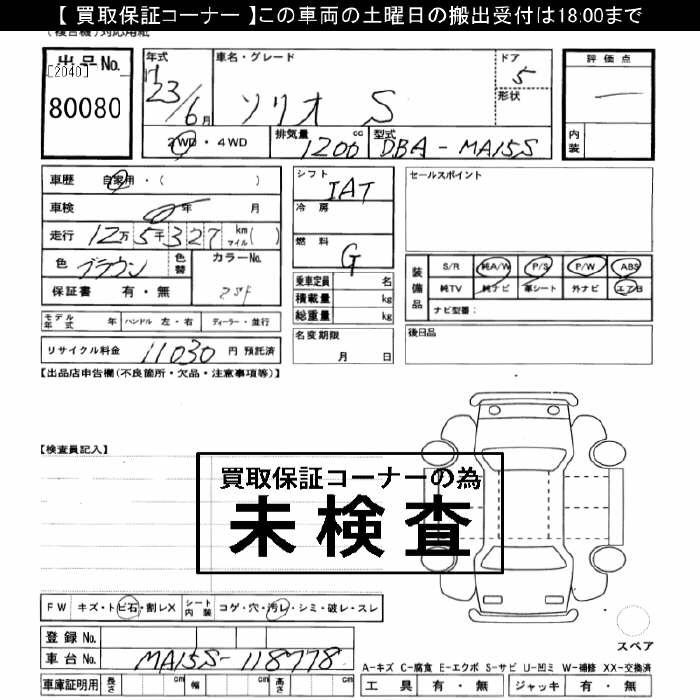 【 買取保証コーナー 】この車両の土曜日の搬出受付は18:00まで
(複合機)対応用紙
出品No.
[2040]
80080
年式
23/6月
車名・グレード
ソリオ S
ドア
5
形状
評価点
内装
2WD・4WD
排気量
1200 cc
型式
DBA-MA15S
車歴 自家用・( )
車検 年 月
走行 12万5千327 km マイル( )
色
ブラウン
色替
カラーNo.
ZSF
保証書 有・無
モデル年式 年
ハンドル 左・右
ディーラー・並行
リサイクル料金 11030 円 預託済
シフト
IAT
冷房
燃料
G
乗車定員 名
積載量 kg
総重量 kg
名変期限
月 日
セールスポイント
装備品
S/R 純A/W P/S P/W ABS
純TV 純ナビ 革シート 外ナビ エアB
ナビ型番:
後日品
【出品店申告欄(不良箇所・欠品・注意事項等)】
【検査員記入】
買取保証コーナーの為
未検査
FW キズ・トビ石・割レX
シート内装 コゲ・穴・汚レ・シミ・破レ・スレ
登録No.
車台No. MA15S-118778
車庫証明用 長さ cm 幅 cm 高さ cm
スペア
A-キズ C-腐食 E-エクボ S-サビ U-凹ミ W-補修 XX-交換済
工具 有・無 ジャッキ 有・無